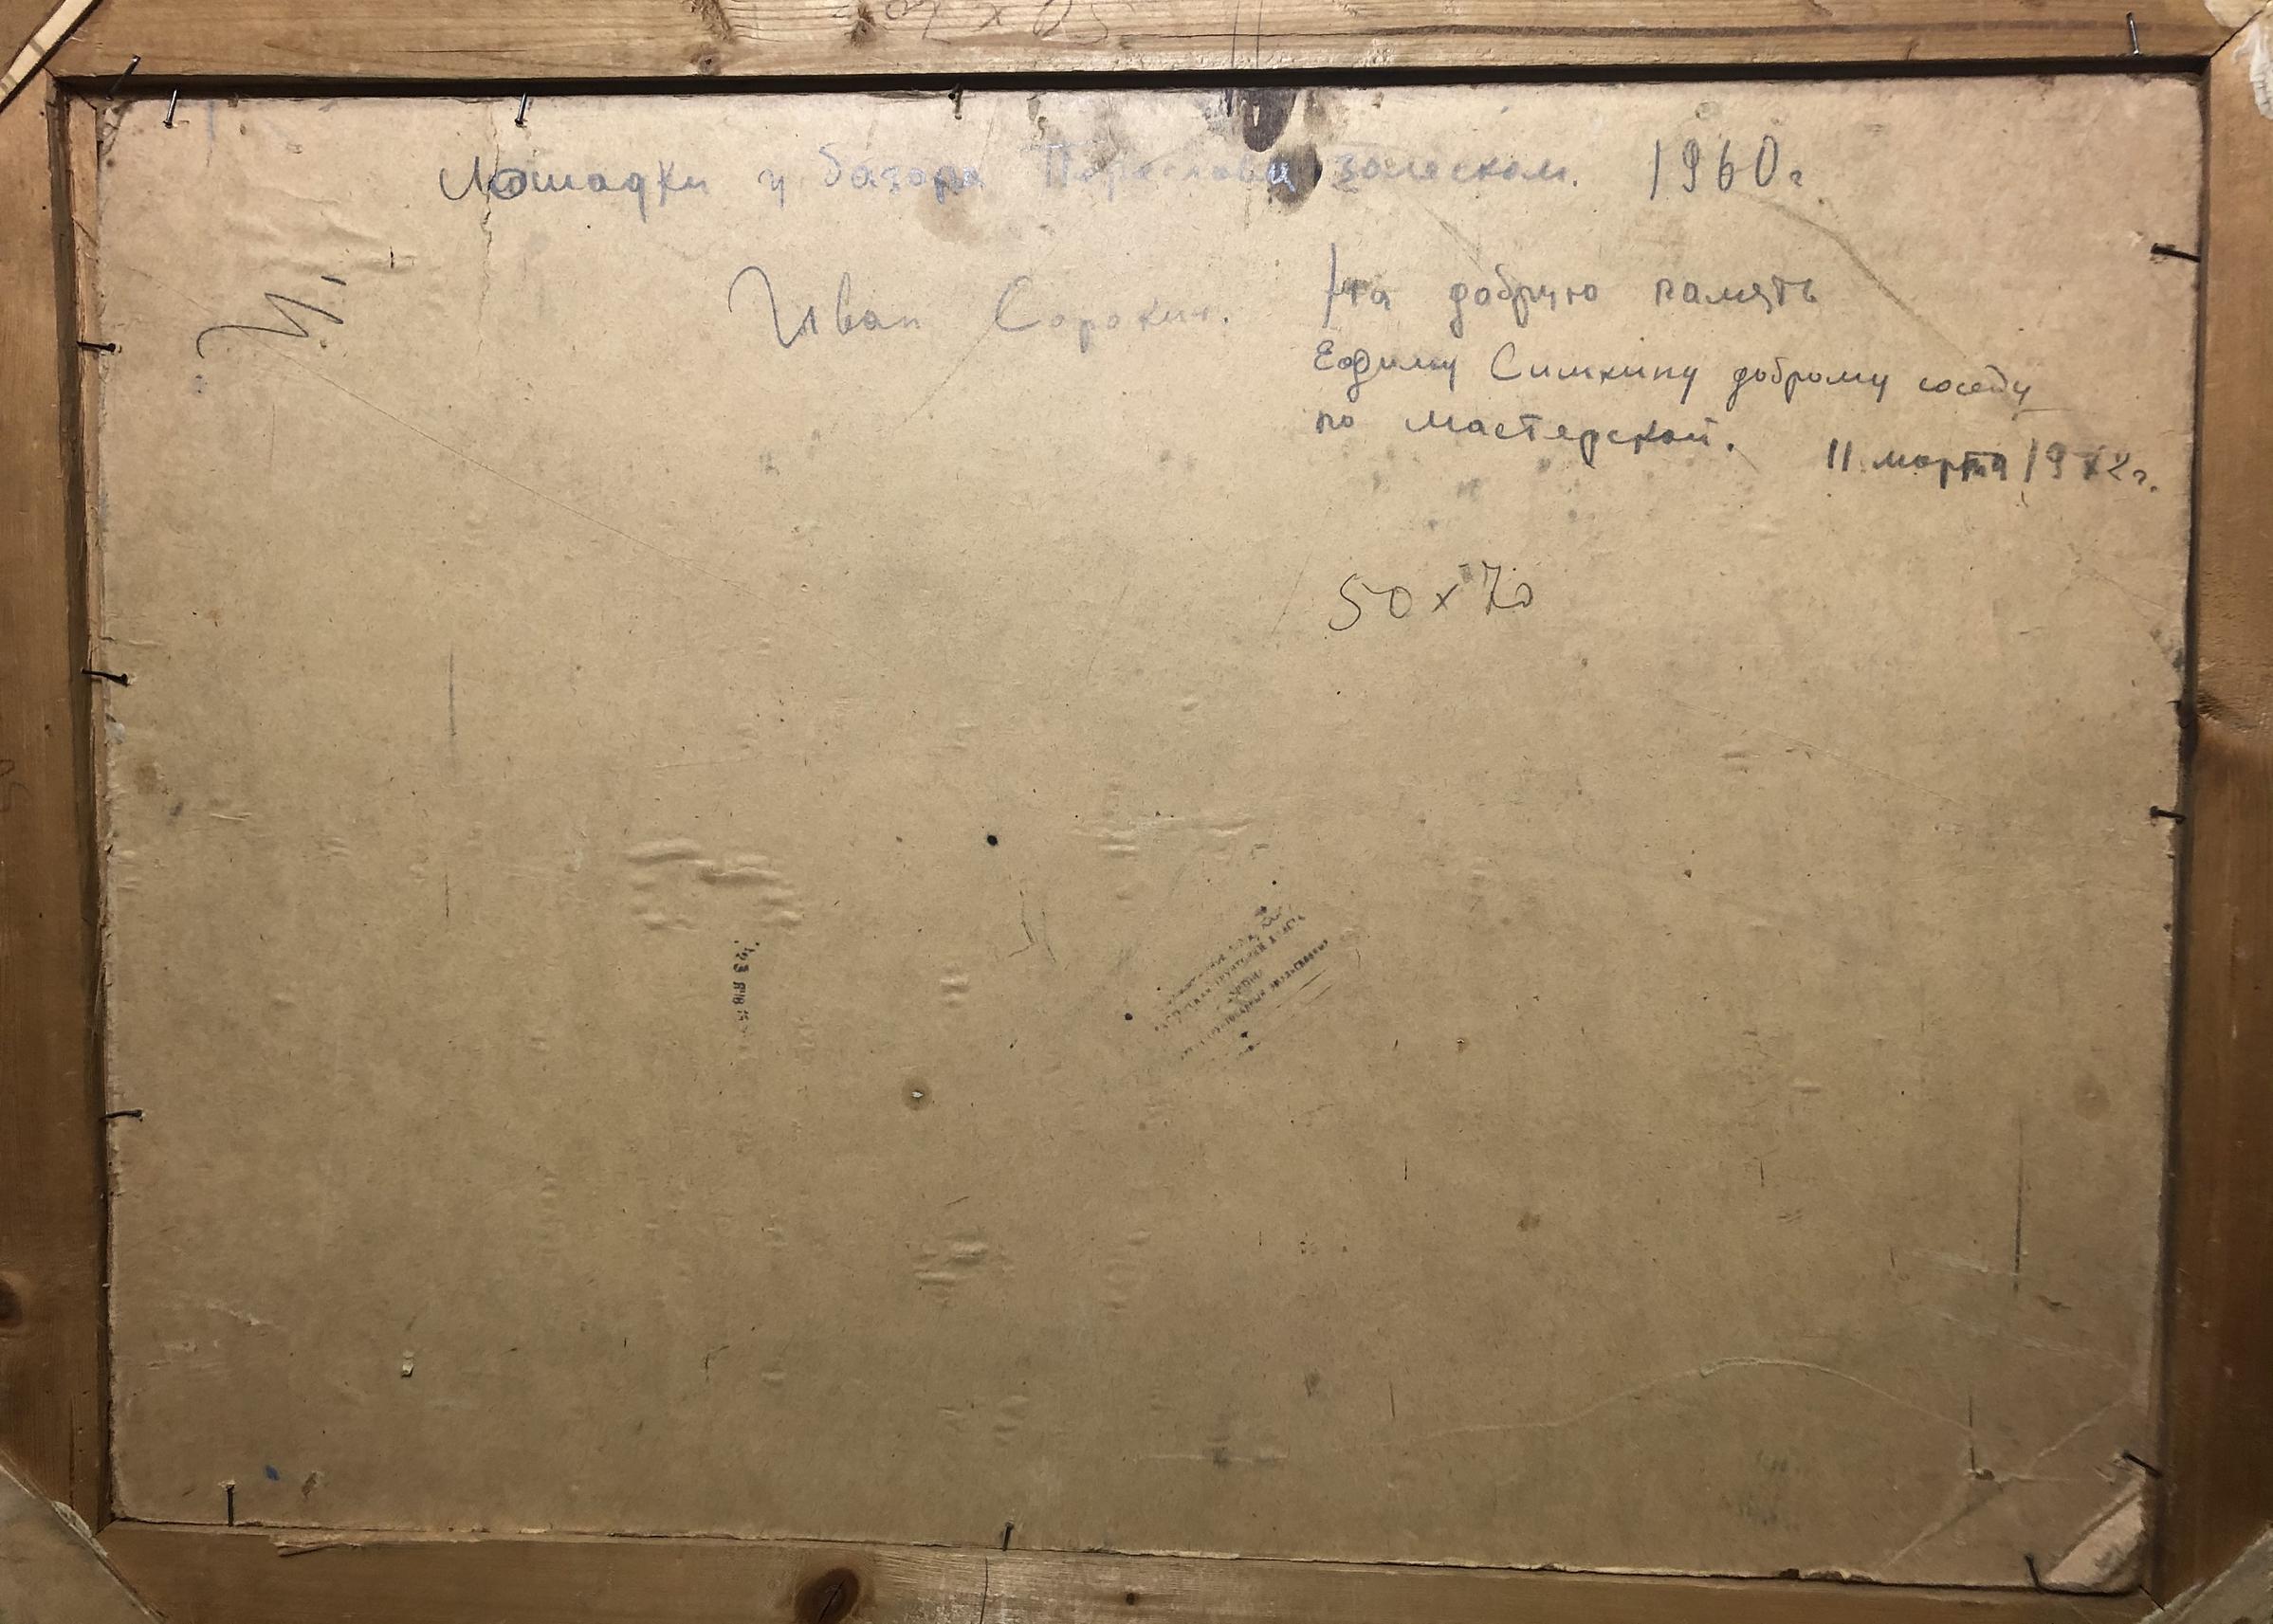 Лошадки у базара Переслава залеском. 1960г
Иван Сорокин.
На добрую память
Ефиму Симкину доброму соседу
по мастерской.
11 марта 19
50х70